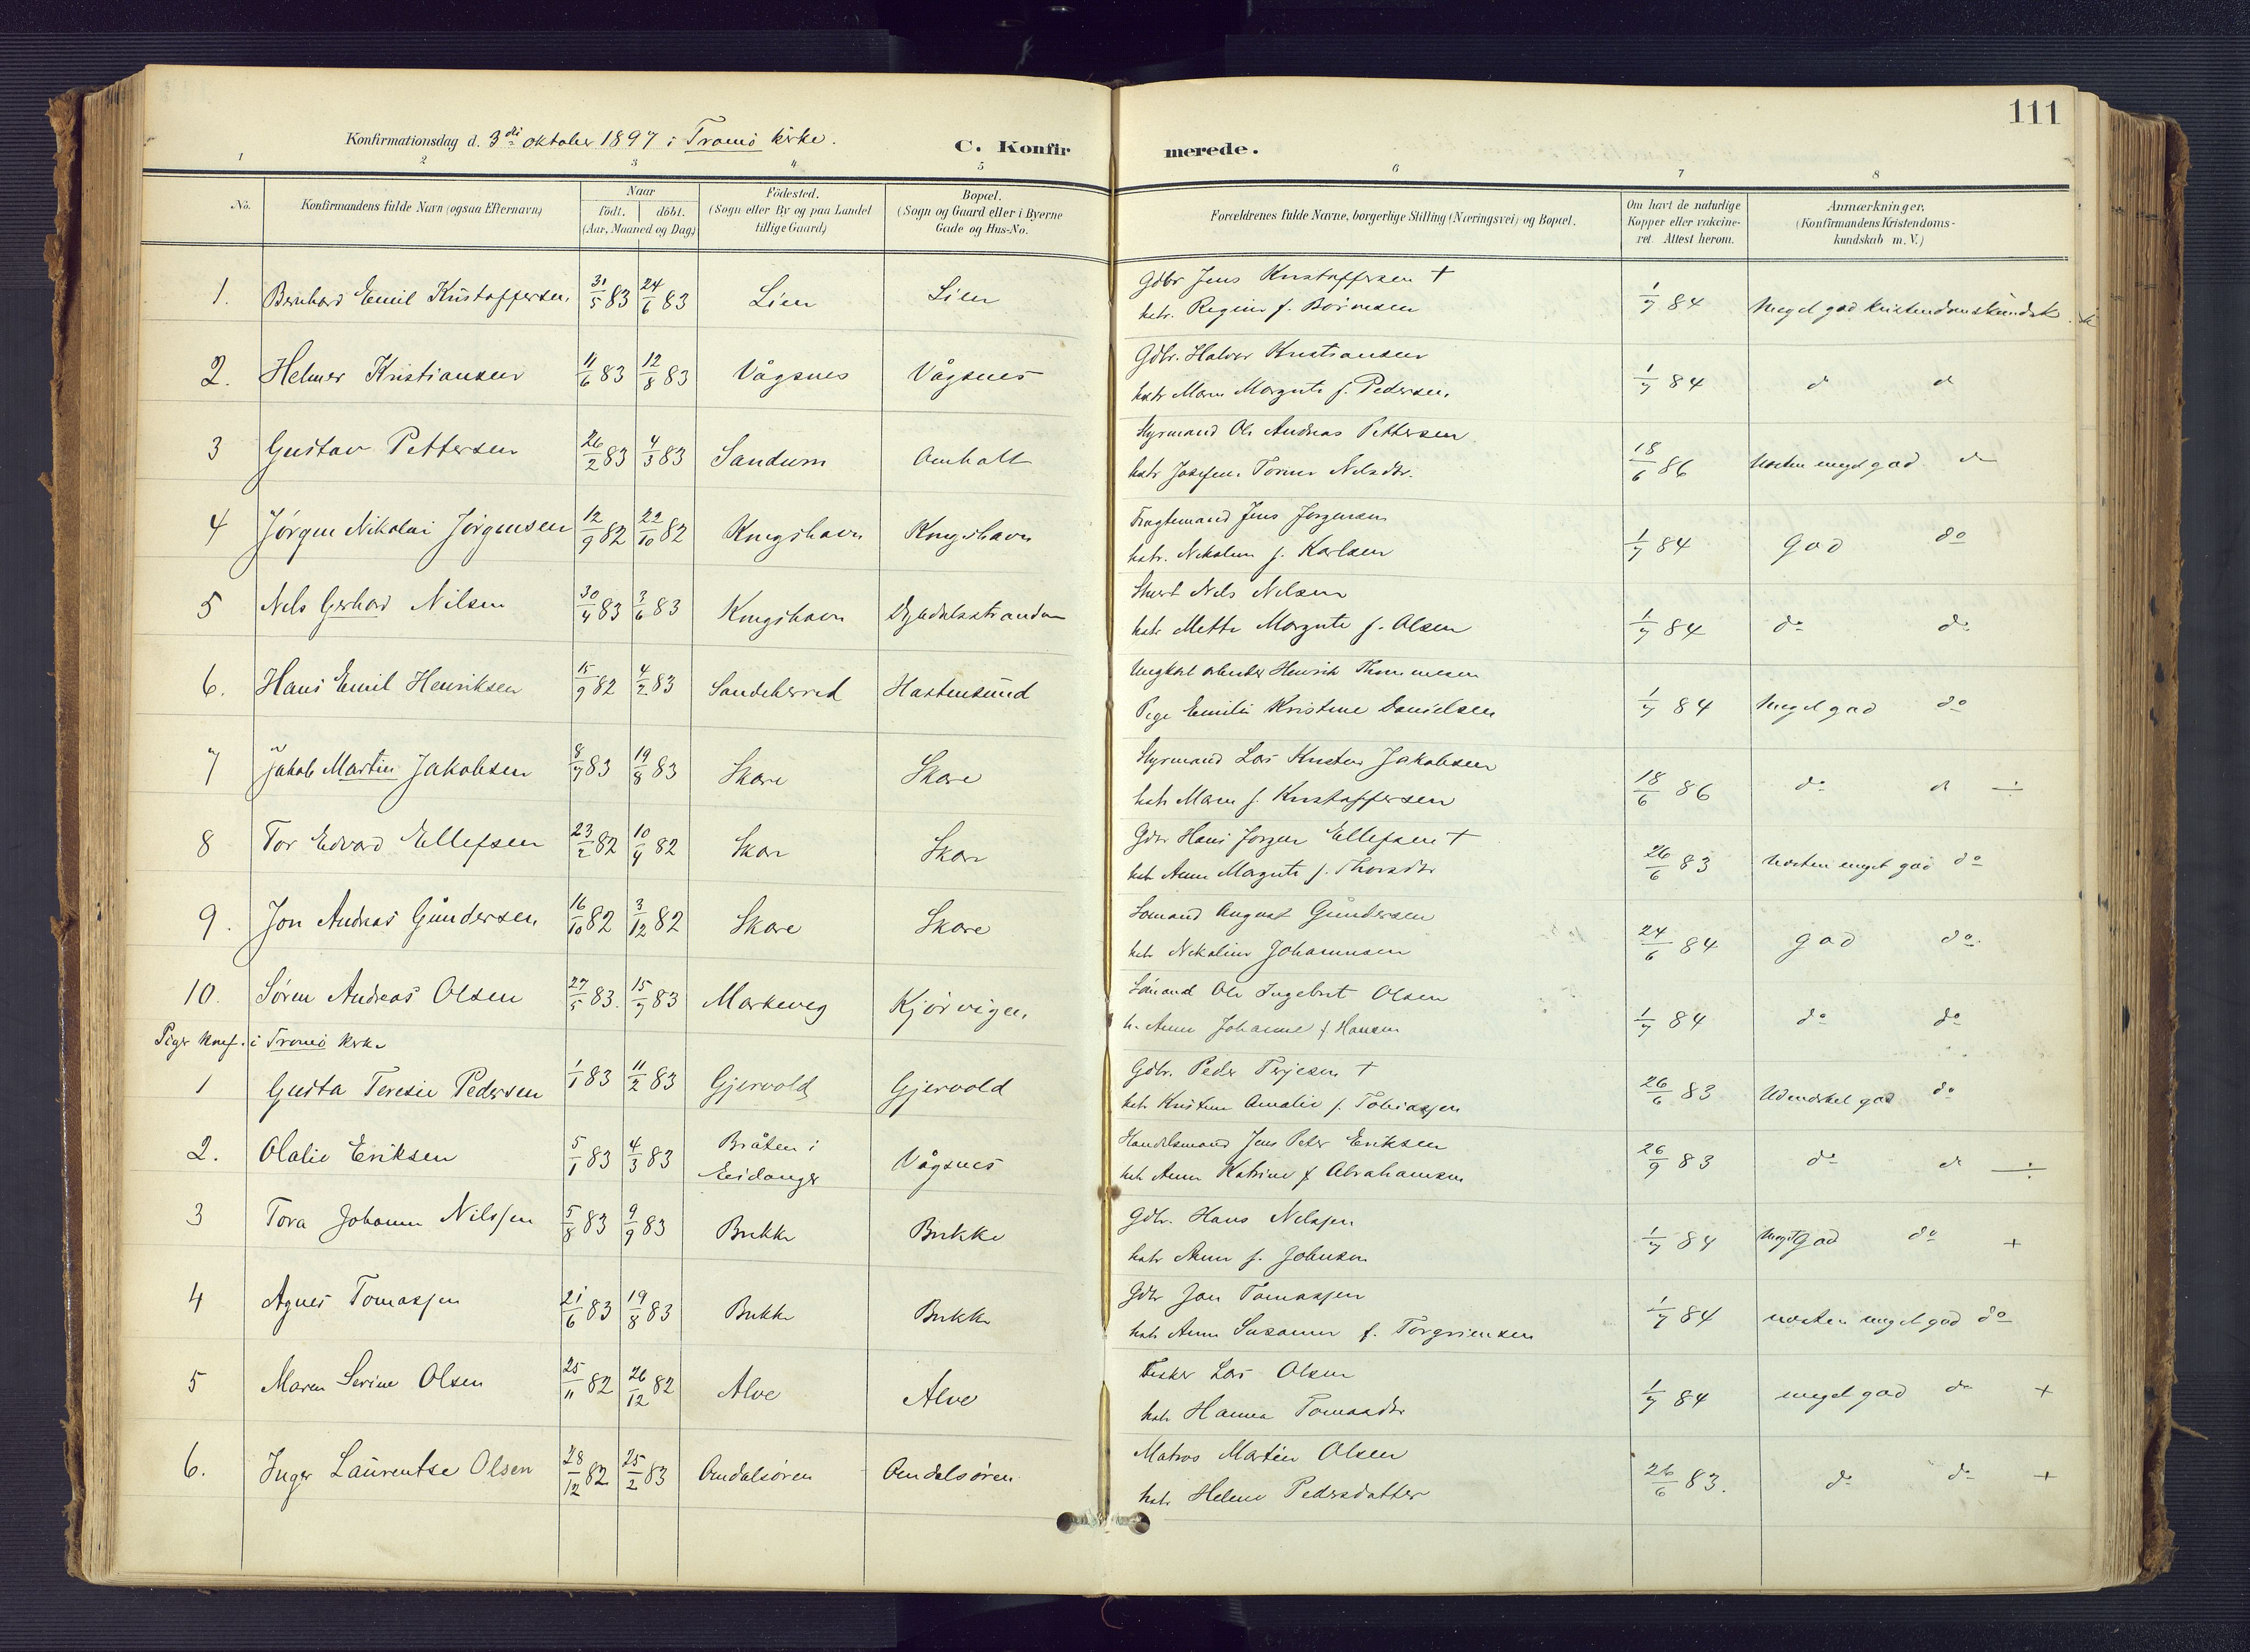 111
Konfirmationsdag d. 3die oktober 1897 i Tromö kirke.
C. Konfirmerede.
1 2 3 4 5 6 7 8
No. Konfirmandens fulde Navn (ogsaa Efternavn) Naar födt. döbt. (Aar, Maaned og Dag) Födested. (Sogn eller By og paa Landet tillige Gaard) Bopæl. (Sogn og Gaard eller i Byerne Gade og Hus-No. Forældrenes fulde Navne, borgerlige Stilling (Næringsvei) og Bopæl. Om havt de naturlige Kopper eller vakcineret. Attest herom. Anmærkninger, (Konfirmandens Kristendomskundskab m. V.)
1. Bernhard Emil Kristoffersen. 31/5 83 24/6 83 Lien Lien Gdbr Jens Kristoffersen +
hstr. Regine f. Börresen 1/7 84 Meget god kristendomskundsk
2. Helmer Kristiansen 11/6 83 12/8 83 Vågsnes Vågsnes Gdbr. Halvor Kristiansen
hstr Maren Margrete f. Pedersen. 1/7 84 d d
3 Gustav Pettersen 26/2 83 4/3 83 Sandum Omholt Styrmand Ole Andreas Pettersen
hstr Josefine Torine Nelsdtr. 18/6 86 Næsten meget god d
4 Jörgen Nikolai Jörgensen 12/9 82 22/10 82 Kongshavn Kongshavn Fragtemand Jens Jorgensen
hstr. Nikoline f. Karlsen 1/7 84 God do
5 Nels Gerhard Nilsen 30/4 83 3/6 83 Kongshavn Nels Nelsen
hstr Mette Margrete f. Olsen 1/7 84 do do
6. Hans Emil Henriksen 15/9 82 4/2 83 Sandeherred Hastensund Ungkarl arbeider Henrik Thommesen
Pige Emilie Kristine Danielsen 1/7 84 Meget god do
7 Jakob Martin Jakobsen 8/7 83 19/8 83 Skare Skare Styrmand Lars Kristen Jakobsen
hstr Maren f. Kristoffersen 18/6 86 do d ÷
8 Tor Edvard Ellefsen 23/2 82 10/4 82 Skare Skare Gdbr Hans Jorgen Ellefsen +
hstr Anne Margrete f. Thorsdtr 26/6 83 Næsten meget god do
9. Jon Andreas Gundersen. 16/10 82 3/12 82 Skare Skare Somand August Gundersen
hstr Nikoline Johannesen 24/6 84 god do
10. Sören Andreas Olsen 27/5 83. 15/7 83 Markeveg Kjörvigen Sömand Ole Ingebret Olsen
h. Anne Johanne f Hansen 1/7 84 do do
Piger konf. i Tromö kirke
1 Gusta Teresie Pedersen 1/1 83 11/2 83 Gjervold Gjervold Gdbr. Peder Terjesen +
hstr Kristine Amalie f. Tobiassen 26/6 83 Udmerket god do
2. Olalie Eriksen 5/1 83 4/3 83 Bråten i Eidanger Vågsnes Handelsmand Jens Peter Eriksen
hstr Anne Katrine f Abrahamsen 26/9 83 do d ÷
3 Tora Johanne Nilssen 5/8 83 9/9 83 Brekke Brekke Gdbr. Hans Nelssen
hstr Anne f. Johnsen 1/7 84 Meget God do +
4 Agnes Tomassen 21/6 83 19/8 83 Brekke Brekke Gdbr Jon Tomassen
hstr Anne Susanne f. Torgrimsen 1/7 84 næsten meget god do
5 Maren Serine Olsen 25/11 82 26/12 82 Alve Alve Fisker Lars Olsen
hstr Hanna Tomasdtr 1/7 84 meget god do +
6. Inger Laurentse Olsen 28/12 82 25/2 83 Omdalsören Omdalsören Matros Martin Olsen
hstr Helene Pedersdatter 26/6 83. do do +